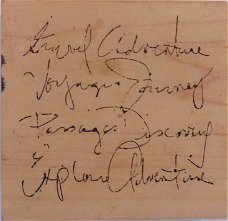 Travel Adventure
Voyages Journey
Passages Discovery
Explore Adventure